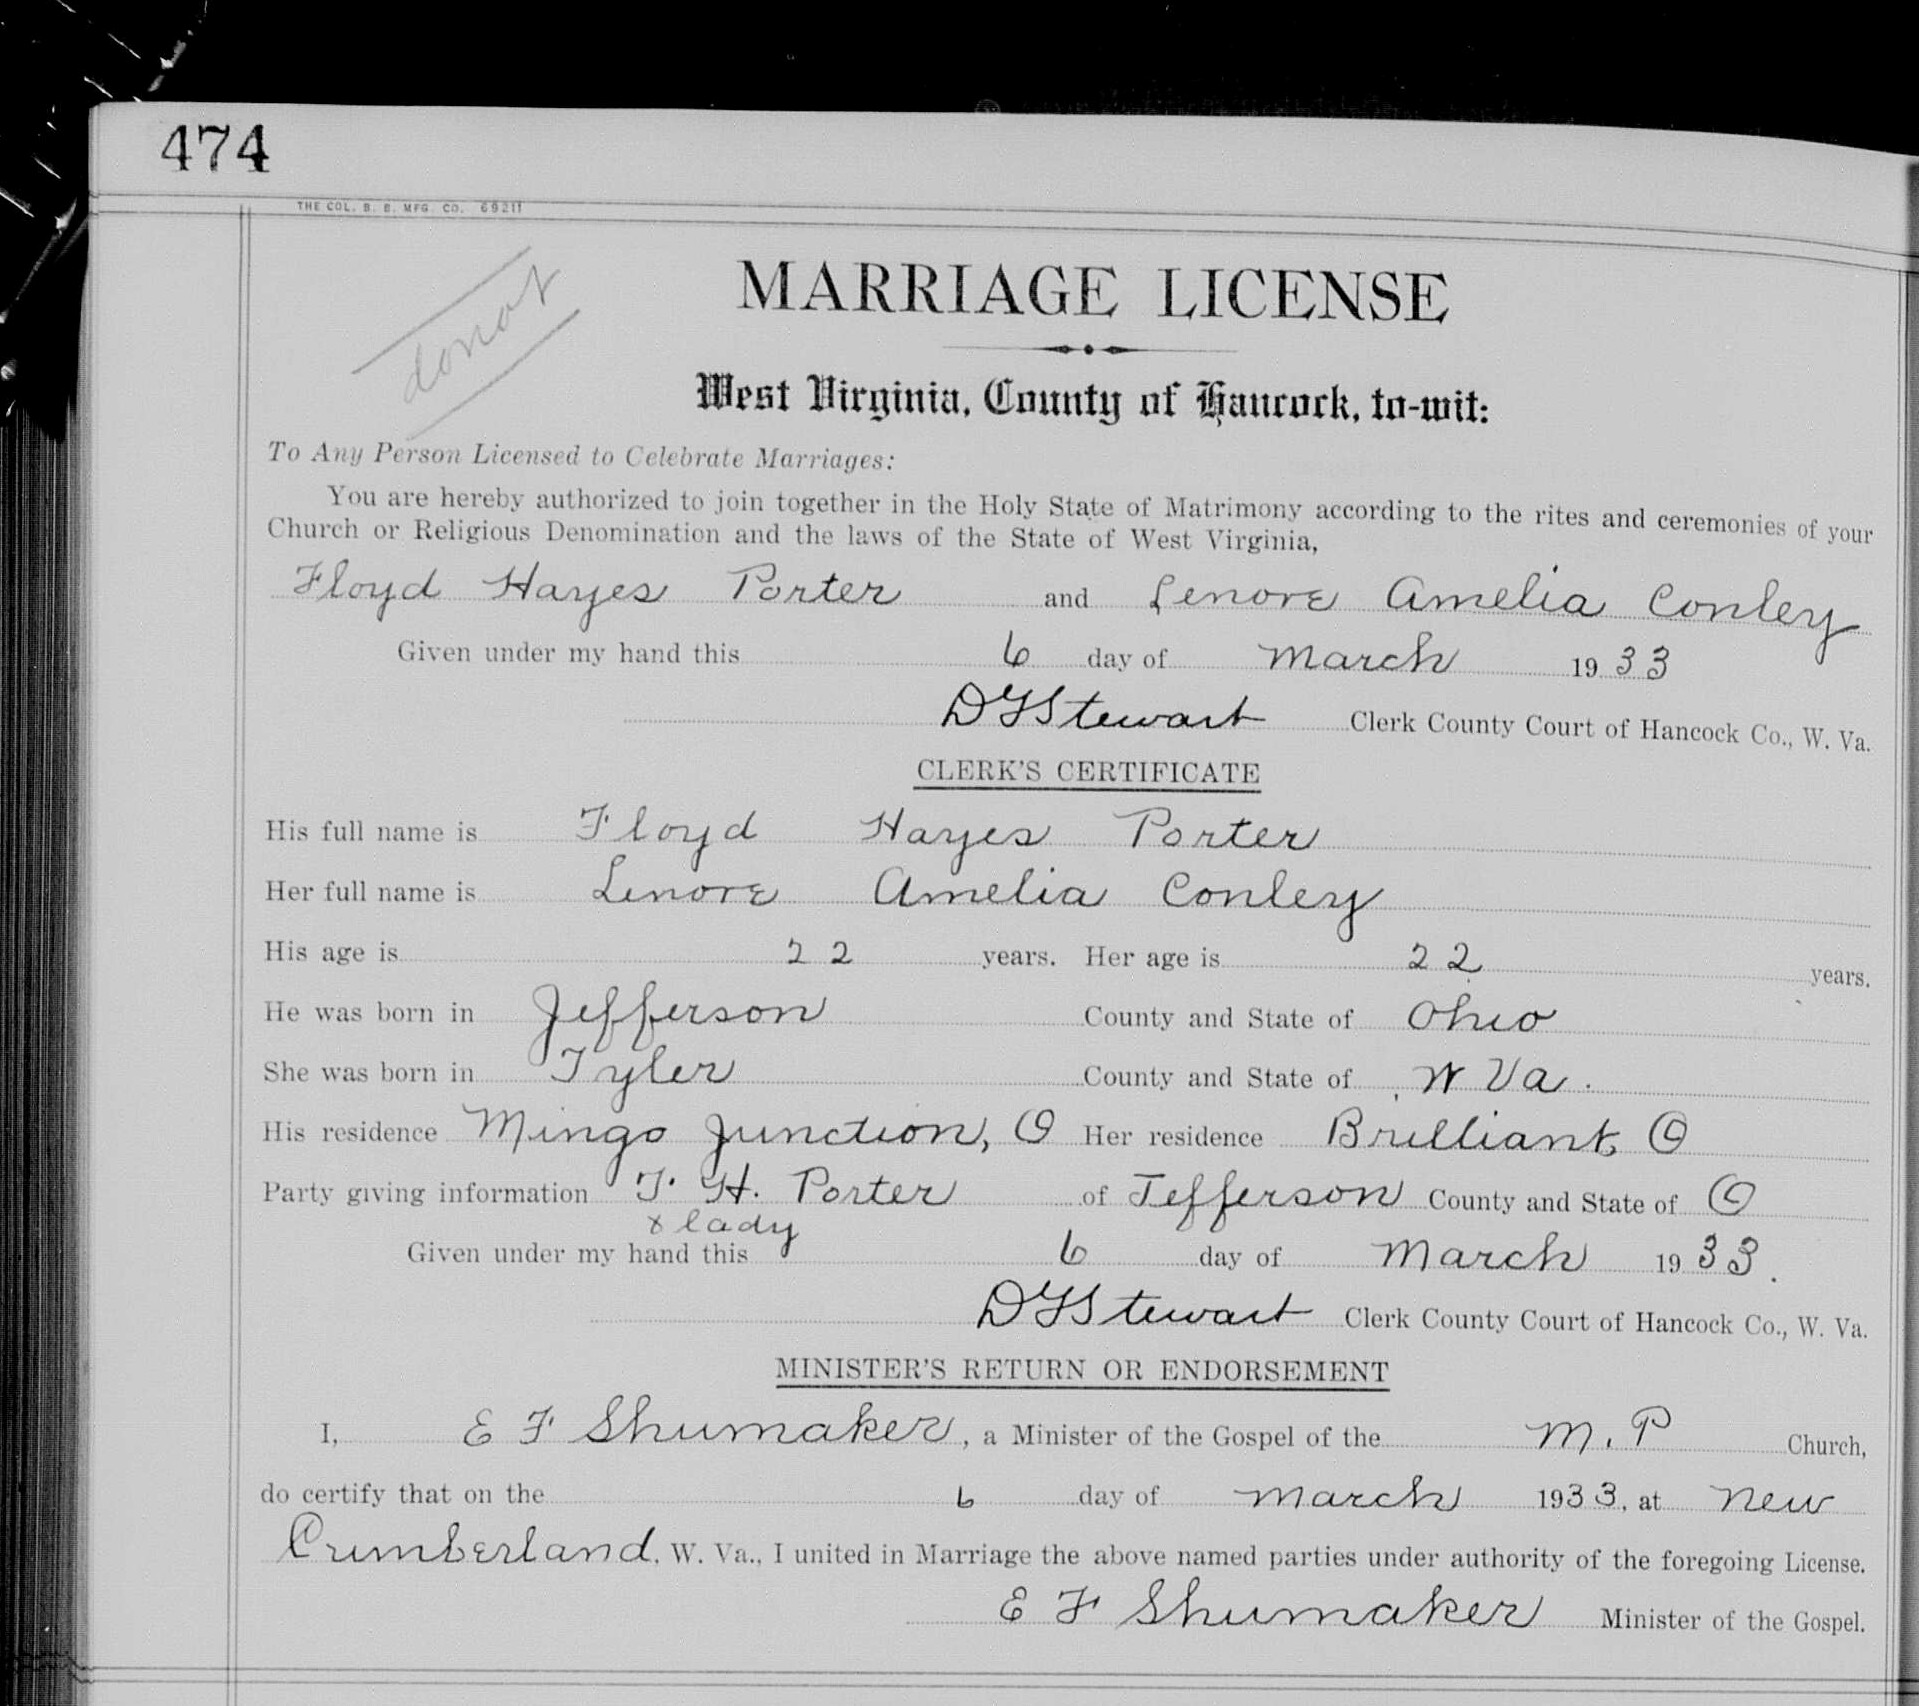 474
THE COL. B. B. MFG. CO. 69211
MARRIAGE LICENSE
West Virginia, County of Hancock, to-wit:
To Any Person Licensed to Celebrate Marriages:
You are hereby authorized to join together in the Holy State of Matrimony according to the rites and ceremonies of your
Church or Religious Denomination and the laws of the State of West Virginia,
Floyd Hayes Porter and Lenore Amelia Conley
Given under my hand this 6 day of March 1933
Stewart Clerk County Court of Hancock Co., W. Va.
CLERK'S CERTIFICATE
His full name is Floyd Hayes Porter
Her full name is Lenore Amelia Conley
His age is 22 years. Her age is 22 years.
He was born in Jefferson County and State of Ohio
She was born in Tyler County and State of W Va.
His residence Mingo Junction, O Her residence Brilliant, O
Party giving information F. H. Porter of Jefferson County and State of O
& lady
Given under my hand this 6 day of March 1933.
Stewart Clerk County Court of Hancock Co., W. Va.
MINISTER'S RETURN OR ENDORSEMENT
I, E F Shumaker, a Minister of the Gospel of the M. P Church,
do certify that on the 6 day of March 1933, at New
Cumberland, W. Va., I united in Marriage the above named parties under authority of the foregoing License.
E F Shumaker Minister of the Gospel.